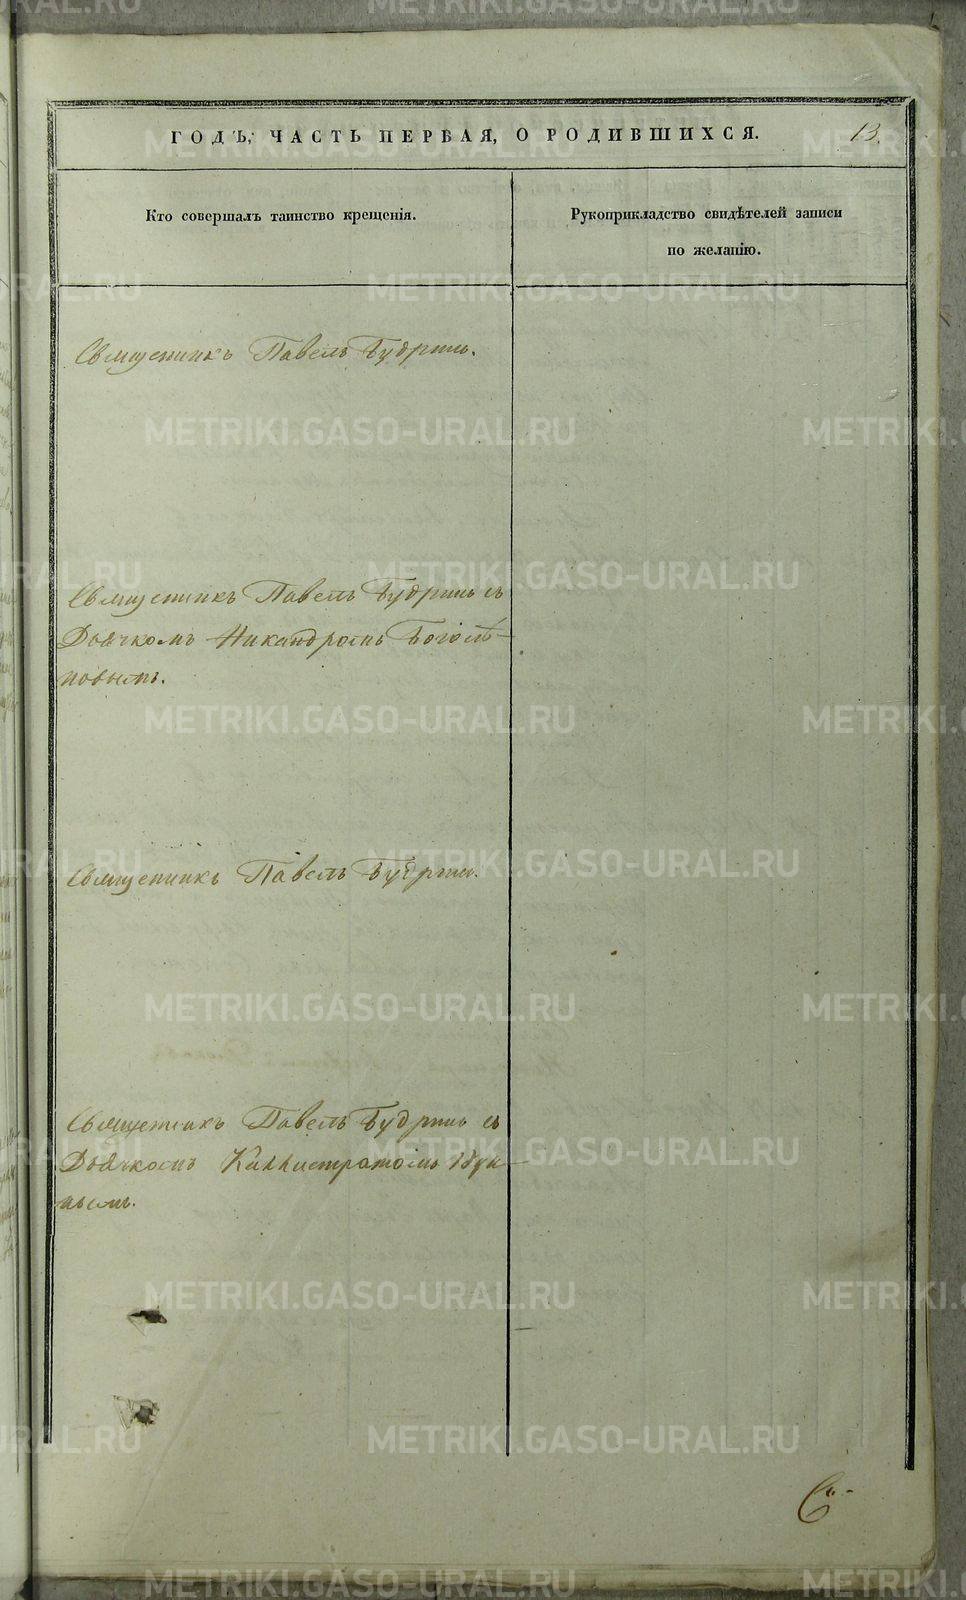 ГОДЪ, ЧАСТЬ ПЕРВАЯ, О РОДИВШИХСЯ. 13.
Кто совершалъ таинство крещенія.
Рукоприкладство свидѣтелей записи
по желанію.
Священникъ Павелъ Будринъ.
Священникъ Павелъ Будринъ съ
Дьячкомъ Никандромъ Боголѣ-
повымъ.
Священникъ Павелъ Будринъ.
Священникъ Павелъ Будринъ съ
Дьячкомъ Каллистратомъ
METRIKI.GASO-URAL.RU